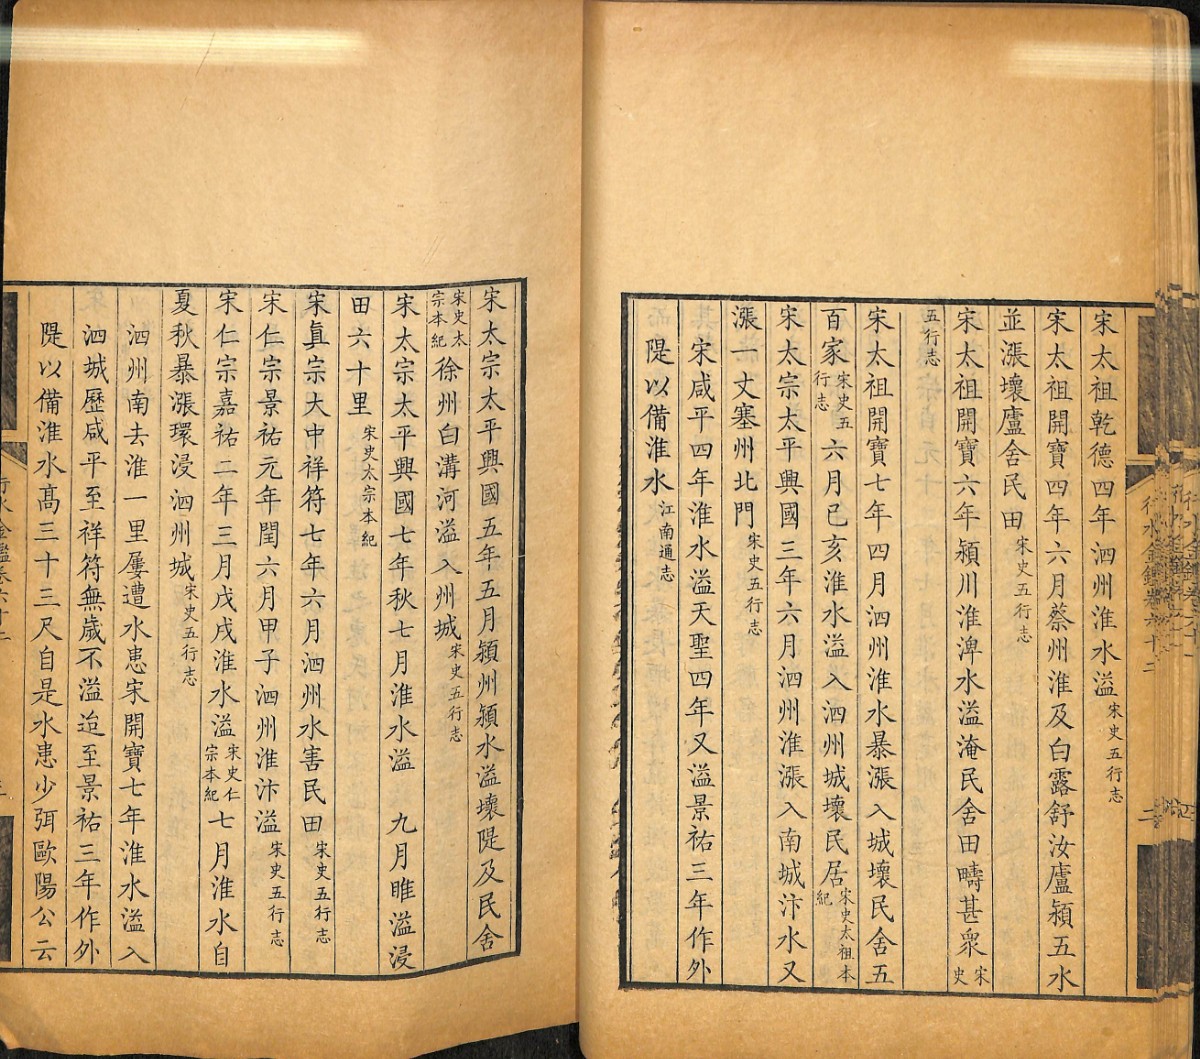 宋太祖乾德四年泗州淮水溢宋史五行志
宋太祖開寶四年六月蔡州淮及白露舒汝廬潁五水
並漲壞廬舍民田宋史五行志
宋太祖開寶六年潁川淮渒水溢淹民舍田疇甚衆宋史
五行志
宋太祖開寶七年四月泗州淮水暴漲入城壞民舍五
百家宋史五行志六月巳亥淮水溢入泗州城壞民居宋史太祖本紀
宋太宗太平興國三年六月泗州淮漲入南城汴水又
漲一丈塞州北門宋史五行志
宋咸平四年淮水溢天聖四年又溢景祐三年作外
隄以備淮水江南通志
宋太宗太平興國五年五月潁州潁水溢壞隄及民舍
宋史太宗本紀徐州白溝河溢入州城宋史五行志
宋太宗太平興國七年秋七月淮水溢 九月睢溢浸
田六十里宋史太宗本紀
宋真宗大中祥符七年六月泗州水害民田宋史五行志
宋仁宗景祐元年閏六月甲子泗州淮汴溢宋史五行志
宋仁宗嘉祐二年三月戊戌淮水溢宋史仁宗本紀七月淮水自
夏秋暴漲環浸泗州城宋史五行志
泗州南去淮一里屢遭水患宋開寶七年淮水溢入
泗城歷咸平至祥符無歲不溢迨至景祐三年作外
隄以備淮水高三十三尺自是水患少弭歐陽公云
行水金鑑卷六十二